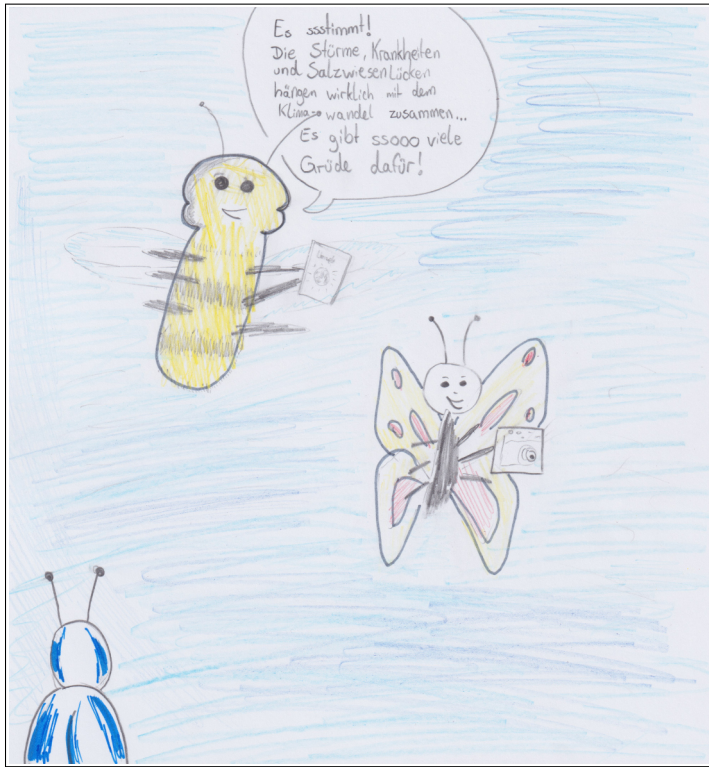 Es ssstimmt!
Die Stürme, Krankheiten
und Salzwiesen Lücken
hängen wirklich mit dem
Klima→wandel zusammen...
Es gibt ssooo viele
Grüde dafür!